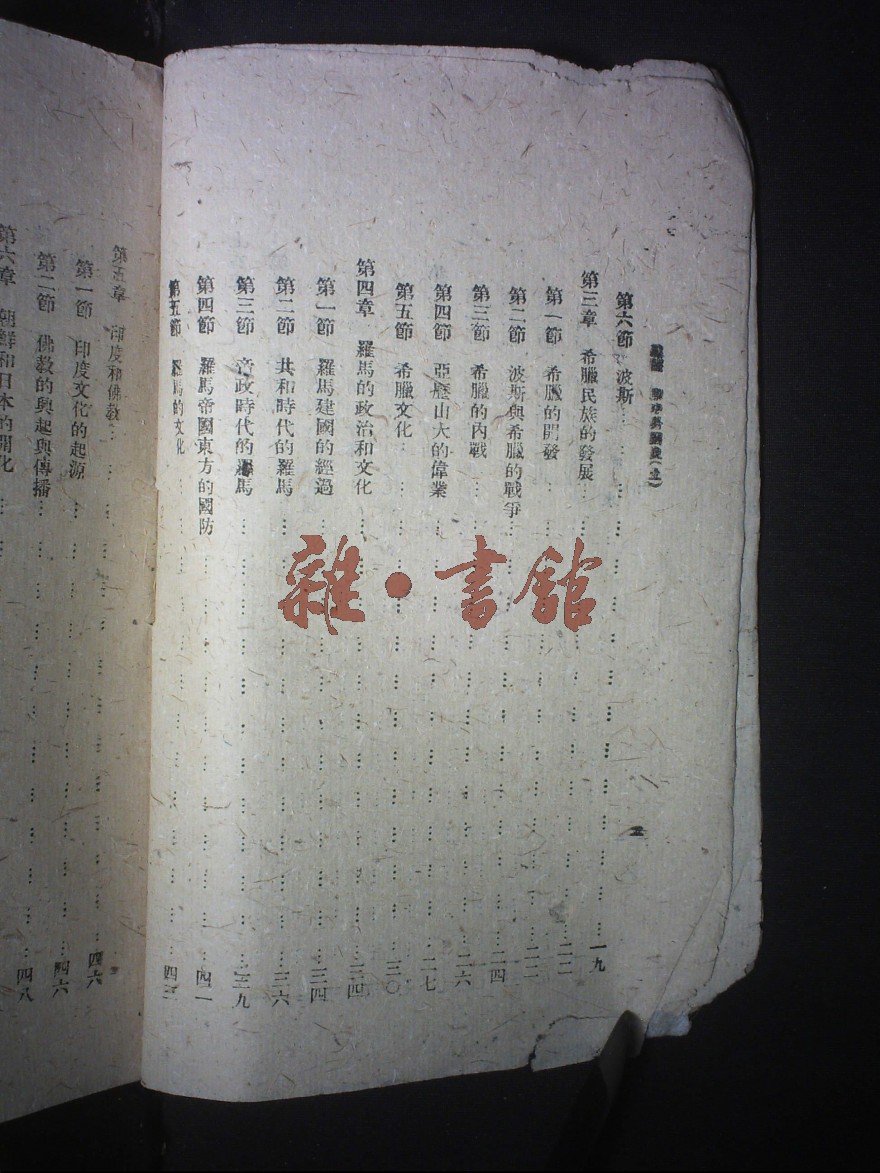 第六節 波斯……一九
第三章 希臘民族的發展……二二
第一節 希臘的開發……二二
第二節 波斯與希臘的戰爭……二四
第三節 希臘的內戰……二六
第四節 亞歷山大的偉業……二七
第五節 希臘文化……三〇
第四章 羅馬的政治和文化……三四
第一節 羅馬建國的經過……三四
第二節 共和時代的羅馬……三六
第三節 帝政時代的羅馬……三九
第四節 羅馬帝國東方的國防……四一
第五節 羅馬的文化……四三
第五章 印度和佛教……四六
第一節 印度文化的起源……四六
第二節 佛教的興起與傳播……四八
第六章 朝鮮和日本的開化
二
雜·書館